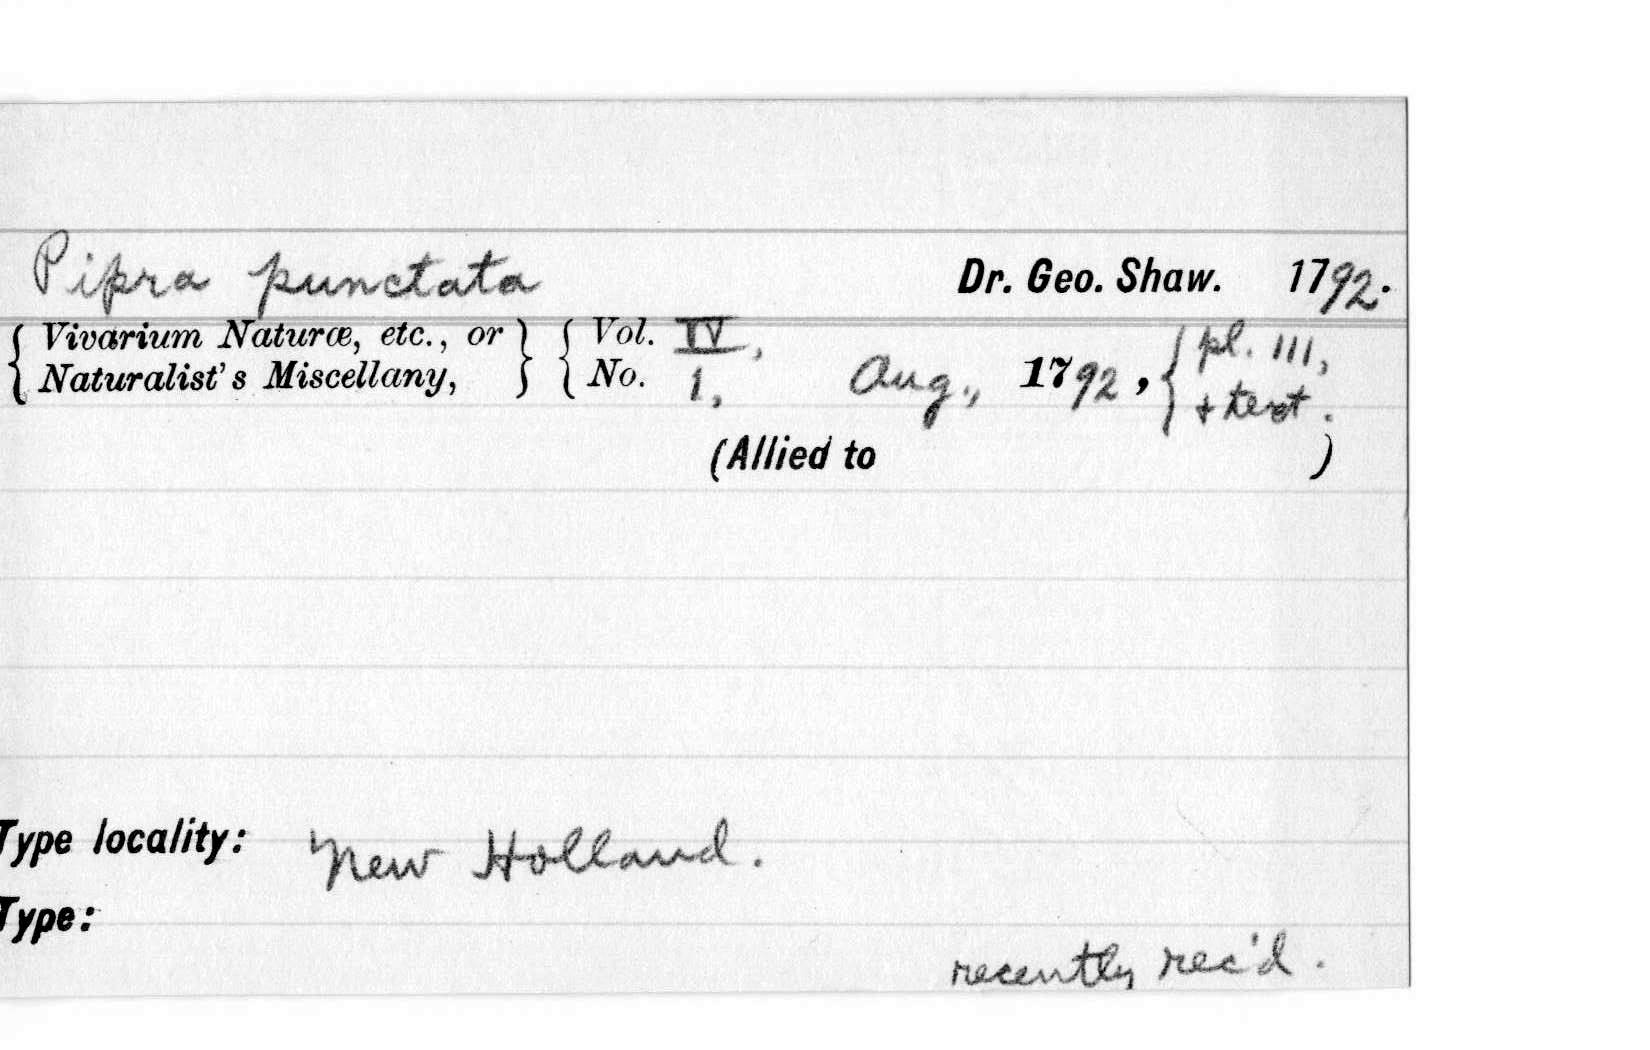 Pipra punctata Dr. Geo. Shaw. 1792.
{ Vivarium Naturæ, etc., or } { Vol. IV, { pl. 111,
{ Naturalist's Miscellany, } { No. 1, Aug., 1792, { + text.
(Allied to )
Type locality: New Holland.
Type:
recently rec'd.